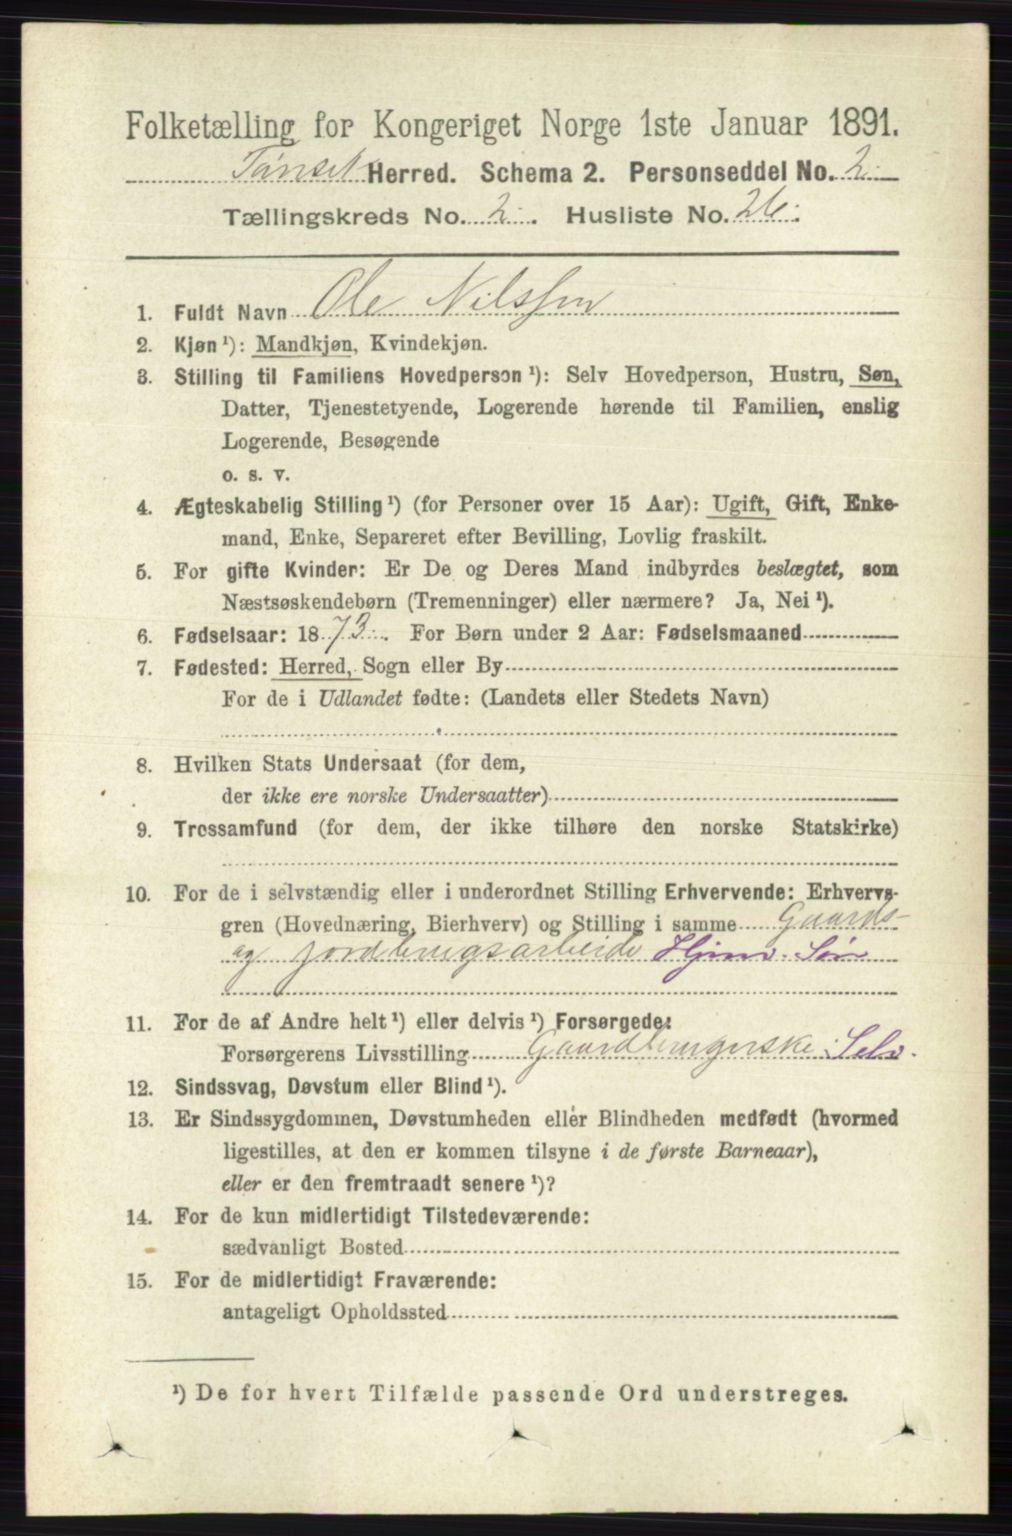 Folketælling for Kongeriget Norge 1ste Januar 1891.
Tønset Herred. Schema 2. Personseddel No. 2.
Tællingskreds No. 2. Husliste No. 26.
1. Fuldt Navn Ole Nilssen
2. Kjøn ¹): Mandkjøn, Kvindekjøn.
3. Stilling til Familiens Hovedperson ¹): Selv Hovedperson, Hustru, Søn,
Datter, Tjenestetyende, Logerende hørende til Familien, enslig
Logerende, Besøgende
o. s. v.
4. Ægteskabelig Stilling ¹) (for Personer over 15 Aar): Ugift, Gift, Enke-
mand, Enke, Separeret efter Bevilling, Lovlig fraskilt.
5. For gifte Kvinder: Er De og Deres Mand indbyrdes beslægtet, som
Næstsøskendebørn (Tremenninger) eller nærmere? Ja, Nei ¹).
6. Fødselsaar: 1873. For Børn under 2 Aar: Fødselsmaaned
7. Fødested: Herred, Sogn eller By
For de i Udlandet fødte: (Landets eller Stedets Navn)
8. Hvilken Stats Undersaat (for dem,
der ikke ere norske Undersaatter)
9. Trossamfund (for dem, der ikke tilhøre den norske Statskirke)
10. For de i selvstændig eller i underordnet Stilling Erhvervende: Erhvervs-
gren (Hovednæring, Bierhverv) og Stilling i samme Gaards-
og jordbrugsarbeide Hjmv. Søn
11. For de af Andre helt ¹) eller delvis ¹) Forsørgede:
Forsørgerens Livsstilling Gaardbrugerske. Selv.
12. Sindssvag, Døvstum eller Blind ¹).
13. Er Sindssygdommen, Døvstumheden eller Blindheden medfødt (hvormed
ligestilles, at den er kommen tilsyne i de første Barneaar),
eller er den fremtraadt senere ¹)?
14. For de kun midlertidigt Tilstedeværende:
sædvanligt Bosted
15. For de midlertidigt Fraværende:
antageligt Opholdssted
¹) De for hvert Tilfælde passende Ord understreges.